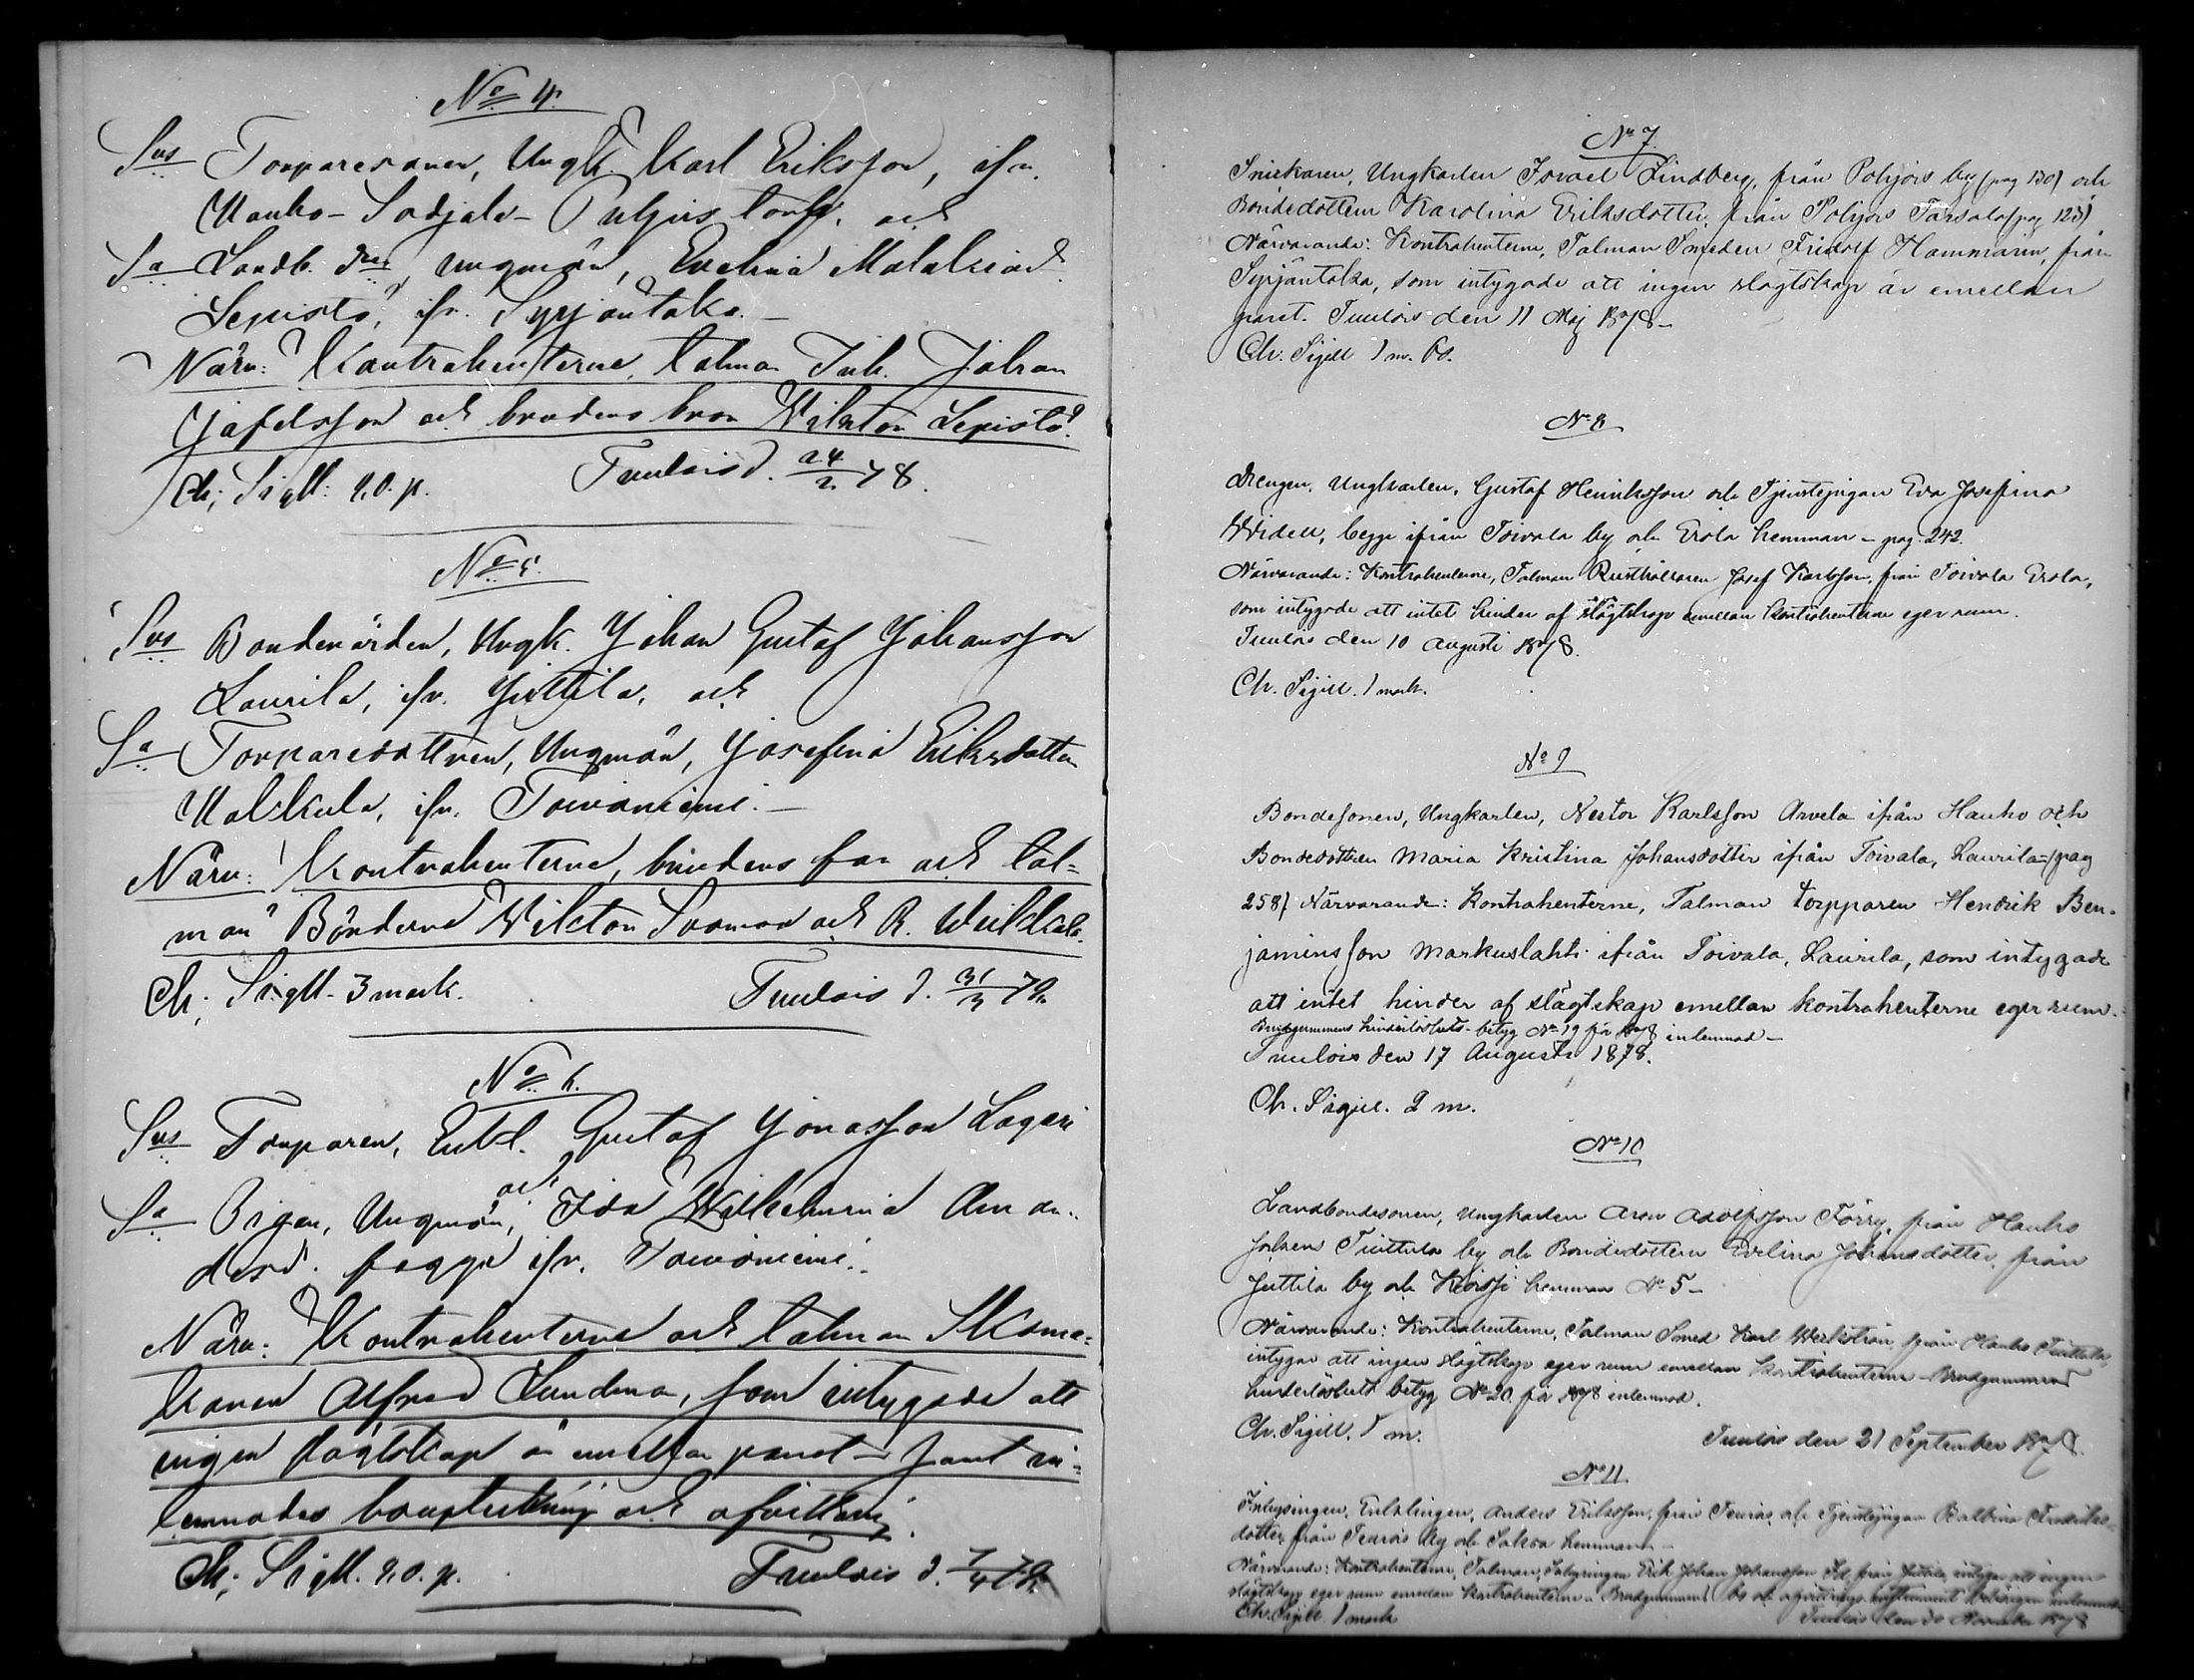 No 4.
Sus Torparesonen, Ungk. Karl Eriksson, ifr.
Hauho - Sodjala - torp. och
Sa Landb. dr, ungmön, Evelina Matalsiad
Lepistö, ifr. Syrjäntaka. -
Närv: Kontrahenterne, talman Inh. Johan
och brudens bror Wiktor Lepistö.
Ch; Sigll: 20. p. Tuulois d. 24/2 78.
No 5.
Sus Bondemågen, Ungk. Johan Gustaf Johansson
Laurila, ifr. Juttila, och
Sa Torparedottren, Ungmön, Josefina Eriksdotter
ifr. Toivaniemi. -
Närv: Kontrahenterne, brudens far och tal=
man Bönderne Wiktor och
Ch; Sigll - 3 mark. Tuulois d. 31/3 78
No 6.
Sus Torparen, Enkl. Gustaf Jonasson
och
Sa Pigan, Ungmön, Ida Wilhelmina Aman=
dasd. begge ifr. Toivoniemi.
Närv: Kontrahenterne och talman Skoma=
karen Alfred Sundman, som intygade att
ingen slägtskap är emellan paret - samt in=
lemnades bouptekning och afvittring.
Ch; Sigll. 20. p. Tuulois d. 7/4 78
No 7.
Snickaren, Ungkarlen Israel Lindberg, från Pohjois by (pag 130) och
Bondedottern Karolina Eriksdotter, från Pohjois Tarsala (pag 123)
Närvarande: Kontrahenterne, Talman Smeden Fridolf Hammarin, från
Syrjäntaka, som intygade att ingen slägtskap är emellan
paret. Tuulois den 11 Maj 1878 -
Ch. Sigill 1 m. 60.
No 8
Drengen, Ungkarlen, Gustaf Henriksson och Tjenstepigan Eva Josefina
Widell, begge ifrån Toivala by och Erola hemman - pag. 242.
Närvarande: Kontrahenterne, Talman Rusthållaren Josef Karlsson, från Toivala Erola,
som intygade att intet hinder af slägtskap emellan kontrahenterne eger rum.
Tuulois den 10 Augusti 1878.
Ch. Sigill. 1 mark.
No 9
Bondesonen, Ungkarlen, Nestor Karlsson Arvela ifrån Hauho och
Bondedottren Maria Kristina Johansdotter ifrån Toivala, Laurila - (pag
258) Närvarande: Kontrahenterne, Talman torpparen Hendrik Ben-
jaminsson Markuslahti ifrån Toivala, Laurila, som intygade
att intet hinder af slägtskap emellan kontrahenterne eger rum.
Brudgummens hinderlöshets-betyg No 19 för 1878 inlemnad -
Tuulois den 17 Augusti 1878.
Ch. Sigill. 2 m.
No 10
Landbondesonen, Ungkarlen Aron Adolfsson Törry, från Hauho
socken Tuittula by och Bondedottern Evelina Johansdotter, från
Juttila by och hemman No 5 -
Närvarande: Kontrahenterne, Talman Smed Karl från Hauho Tuittula,
intygar att ingen slägtskap eger rum emellan kontrahenterne - Brudgummens
hinderlöshets betyg No 20 för 1878 inlemnad.
Ch. Sigill. 1 m. Tuulois den 21 September 1878.
No 11.
Inhysingen, Enklingen, Anders Eriksson, från och Tjenstepigan Balbina Fredriks=
dotter, från by och hemman -
Närvarande: Kontrahenterne, Talman, Erik Johan Johansson från Juttila, intygar att ingen
slägtskap eger rum emellan kontrahenterne - Brudgummens
Ch. Sigill. 1 mark Tuulois den 30 November 1878